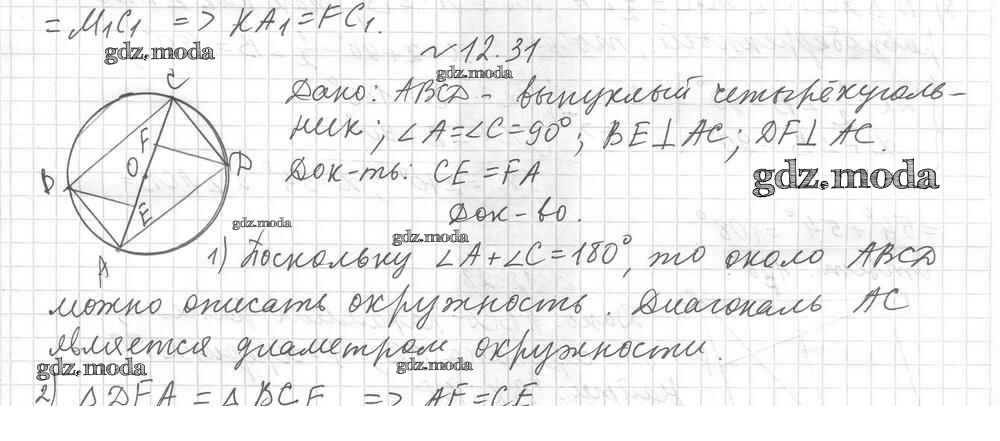 = M₁C₁ => KA₁ = FC₁.
gdz.moda
~ 12.31
gdz.moda
C
Дано: ABCD - выпуклый четырёхуголь-
ник; ∠A = ∠C = 90°; BE ⊥ AC; DF ⊥ AC.
F
O
D
B
E
A
Док-ть: CE = FA
gdz.moda
Док-во.
gdz.moda
gdz.moda
1) Поскольку ∠A + ∠C = 180°, то около ABCD
можно описать окружность. Диагональ AC
является диаметром окружности.
gdz.moda
gdz.moda
2) △DFA = △BCE => AF = CE